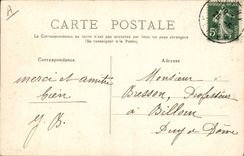 A
CARTE POSTALE
La Correspondance au recto n'est pas acceptée par tous les pays étrangers
(Se renseigner à la Poste)
Correspondance
Adresse
5
merci et amitié
bien
J. B.
Monsieur
Bresson, Professeur
à Billom
Puy de Dôme